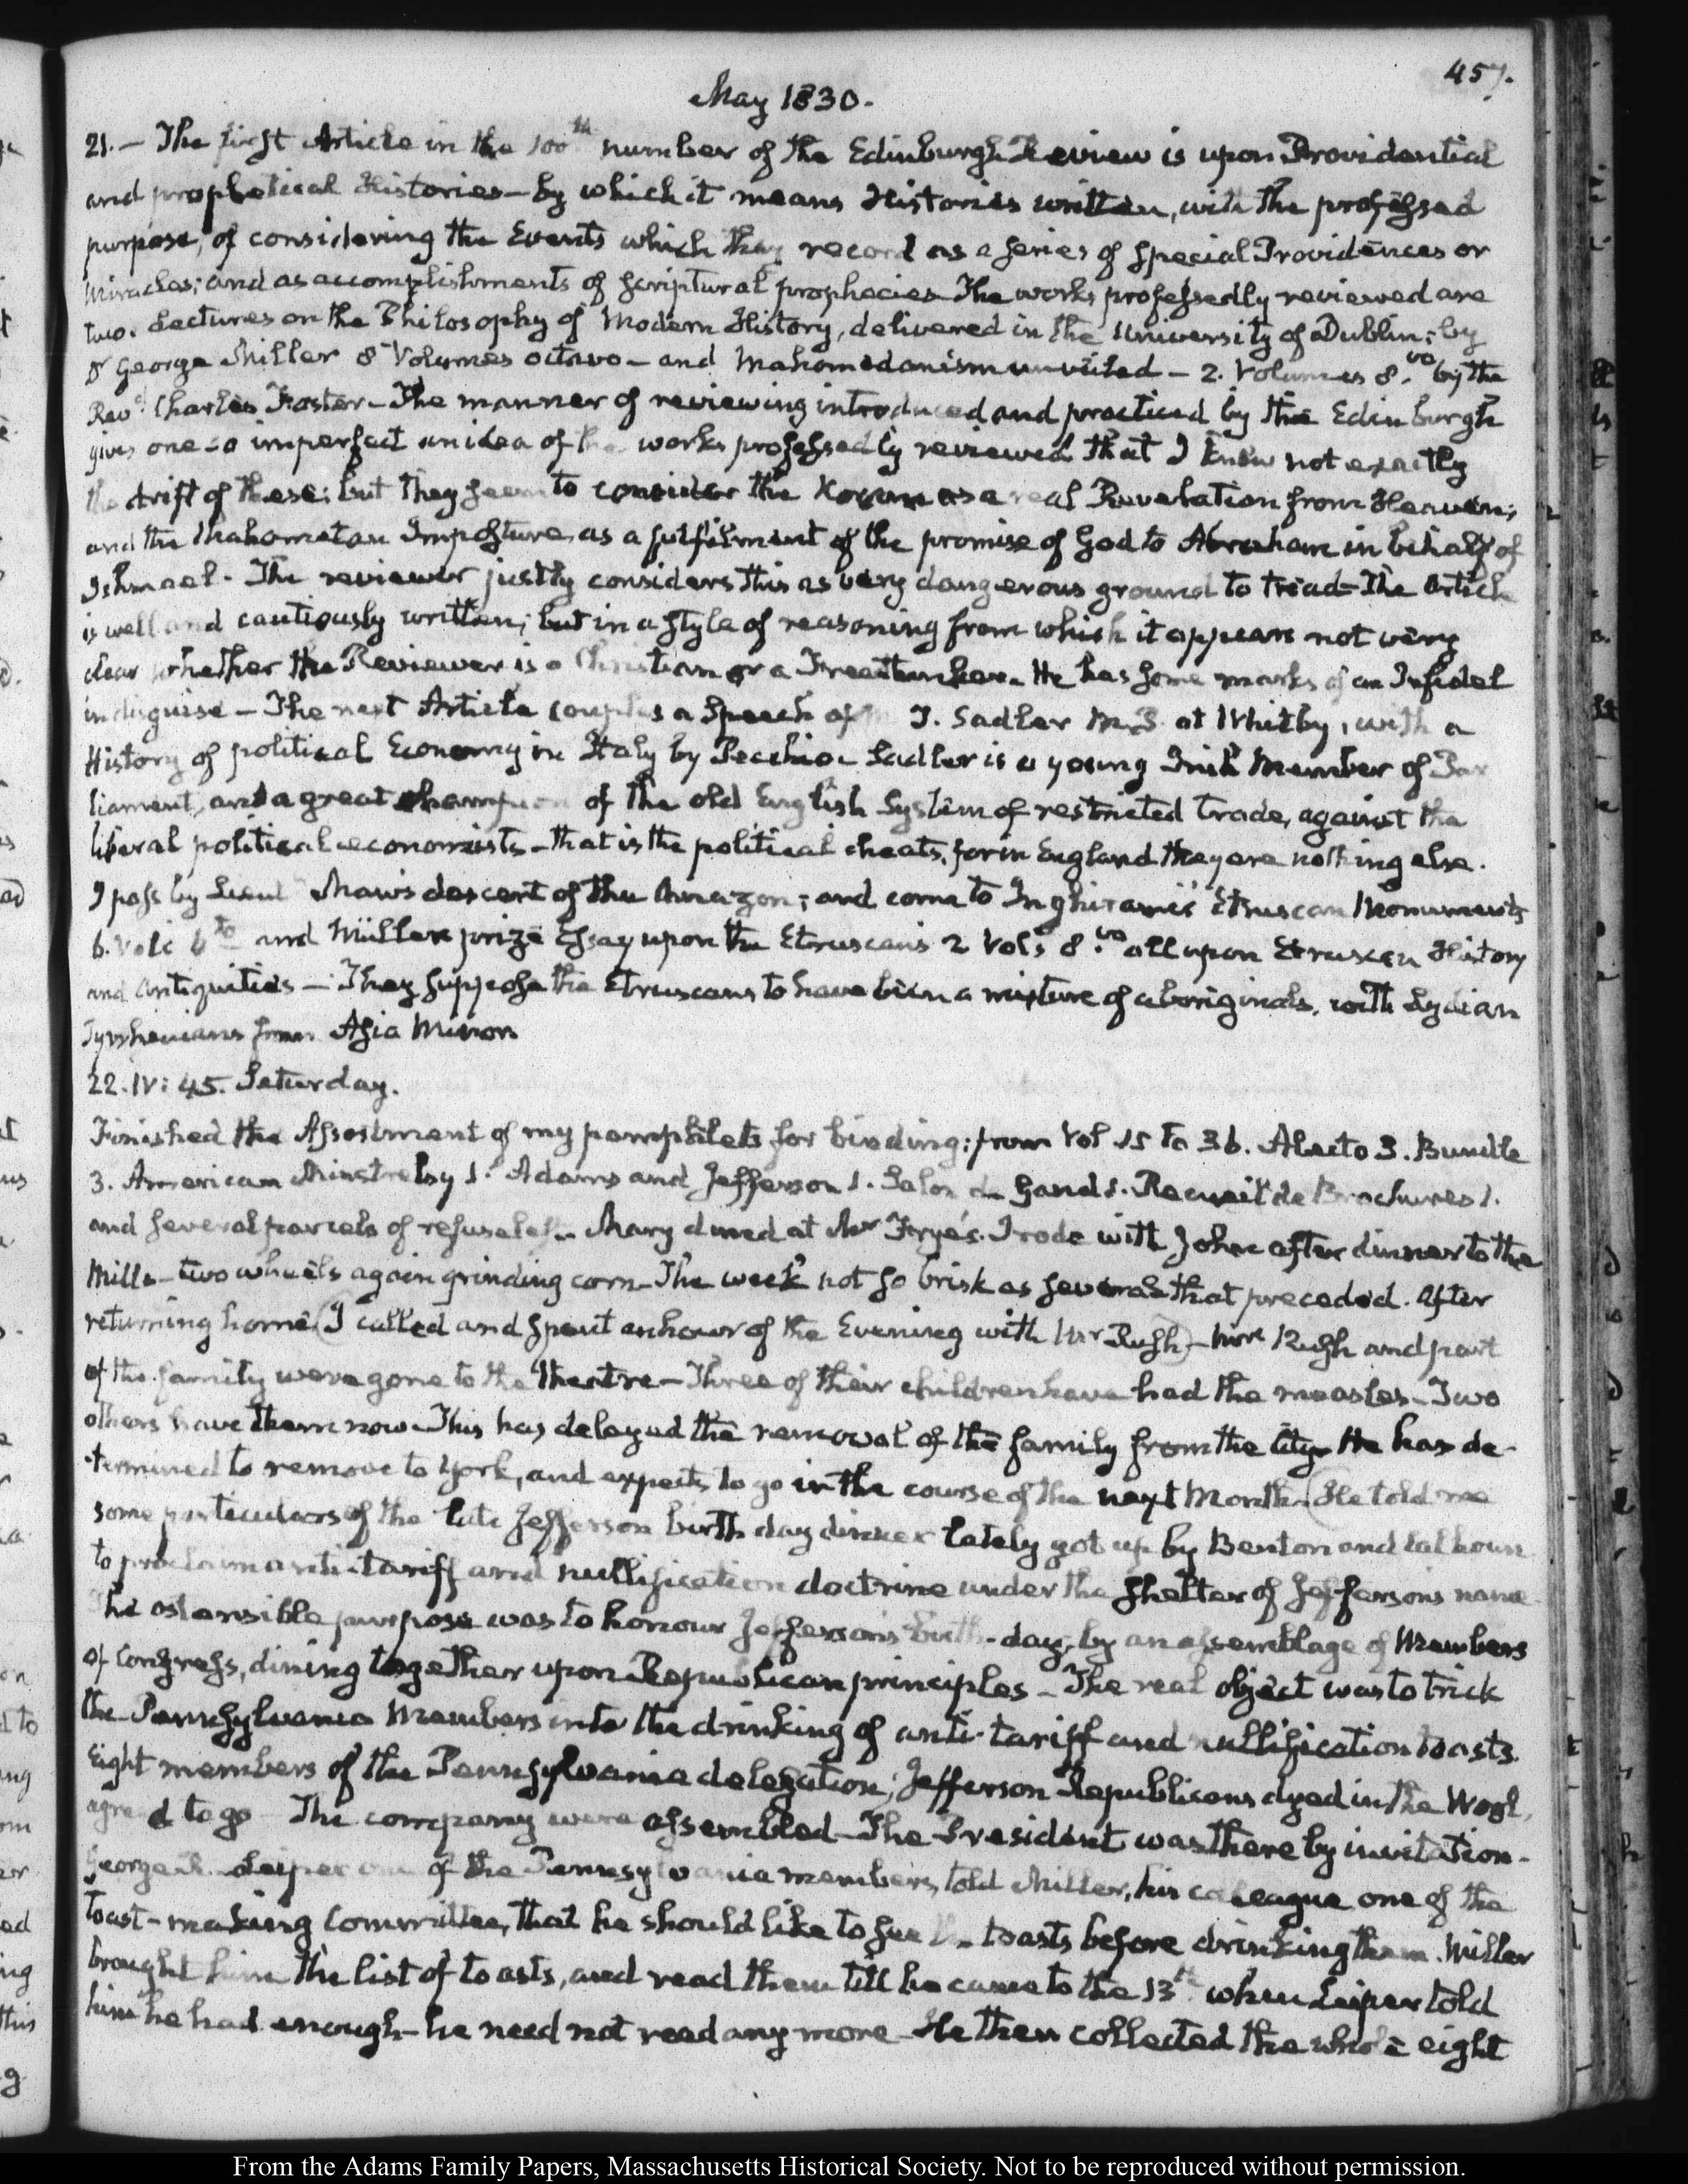 457.
May 1830.
21.— The first Article in the 100th number of the Edinburgh Review is upon Providential
and prophetical Histories — by which it means Histories written, with the professed
purpose, of considering the Events which they record as a series of special Providences or
Miracles; and as accomplishments of scriptural prophecies. The works professedly reviewed are
two. Lectures on the Philosophy of Modern History, delivered in the University of Dublin; by
Dr George Miller 8 Volumes octavo — and Mahomedanism unveiled — 2. Volumes 8.vo by the
Revd. Charles Forster — The manner of reviewing introduced and practiced by the Edinburgh
gives one so imperfect an idea of the works professedly reviewed that I know not exactly
the drift of these; but they seem to consider the Koran as a real Revelation from Heaven;
and the Mahometan Imposture, as a fulfilment of the promise of God to Abraham in behalf of
Ishmael. The reviewer justly considers this as very dangerous ground to tread — The Article
is well and cautiously written; but in a style of reasoning from which it appears not very
clear whether the Reviewer is a Christian or a Freethinker. He has some marks of an Infidel
in disguise — The next Article couples a Speech of T. Sadler M.P. at Whitby, with a
History of political Economy in Italy by Pecchio. Sadler is a young Member of Par
liament, and a great champion of the old English System of restricted trade, against the
liberal political economists — that is the political cheats, for in England they are nothing else.
I pass by Lieut Maw's descent of the Amazon; and come to Inghirami's Etruscan Monuments
6. Vols 4to and Müller's prize Essay upon the Etruscans 2 Vols 8.vo all upon Etruscan History
and Antiquities — They suppose the Etruscans to have been a mixture of aboriginals, with Lydian
Tyrrhenians from Asia Minor
22. IV: 45. Saturday.
Finished the Assortment of my pamphlets for binding; from Vol 15 to 36. Alecto 3. Bundle
3. American Minstrelsy 1. Adams and Jefferson 1. Salon de Gand 1. Recueil de Brochures 1.
and several parcels of refuse left. Mary dined at Mr Frye's. I rode with John after dinner to the
Mills — two wheels again grinding corn — The week not so brisk as several that preceded. After
returning home (I called and spent an hour of the Evening with Mr Rush) — Mrs Rush and part
of the family were gone to the Theatre — Three of their children have had the measles — Two
others have them now — This has delayed the removal of the family from the City. He has de-
termined to remove to York, and expects to go in the course of the next Month. (He told me
some particulars of the late Jefferson birth day dinner lately got up by Benton and Calhoun
to proclaim anti-tariff and nullification doctrine under the shelter of Jefferson's name
The ostensible purpose was to honour Jefferson's birth-day, by an assemblage of Members
of Congress, dining together upon Republican principles — The real object was to trick
the Pennsylvania Members into the drinking of anti-tariff and nullification toasts.
Eight members of the Pennsylvania delegation; Jefferson Republicans dyed in the Wool,
agreed to go — The company were assembled — The President was there by invitation.
George Leiper one of the Pennsylvania members, told Miller, his colleague one of the
toast-making Committee, that he should like to see the toasts before drinking them. Miller
brought him the list of toasts, and read them till he came to the 13th when Leiper told
him he had enough — he need not read any more — He then collected the whole eight
From the Adams Family Papers, Massachusetts Historical Society. Not to be reproduced without permission.